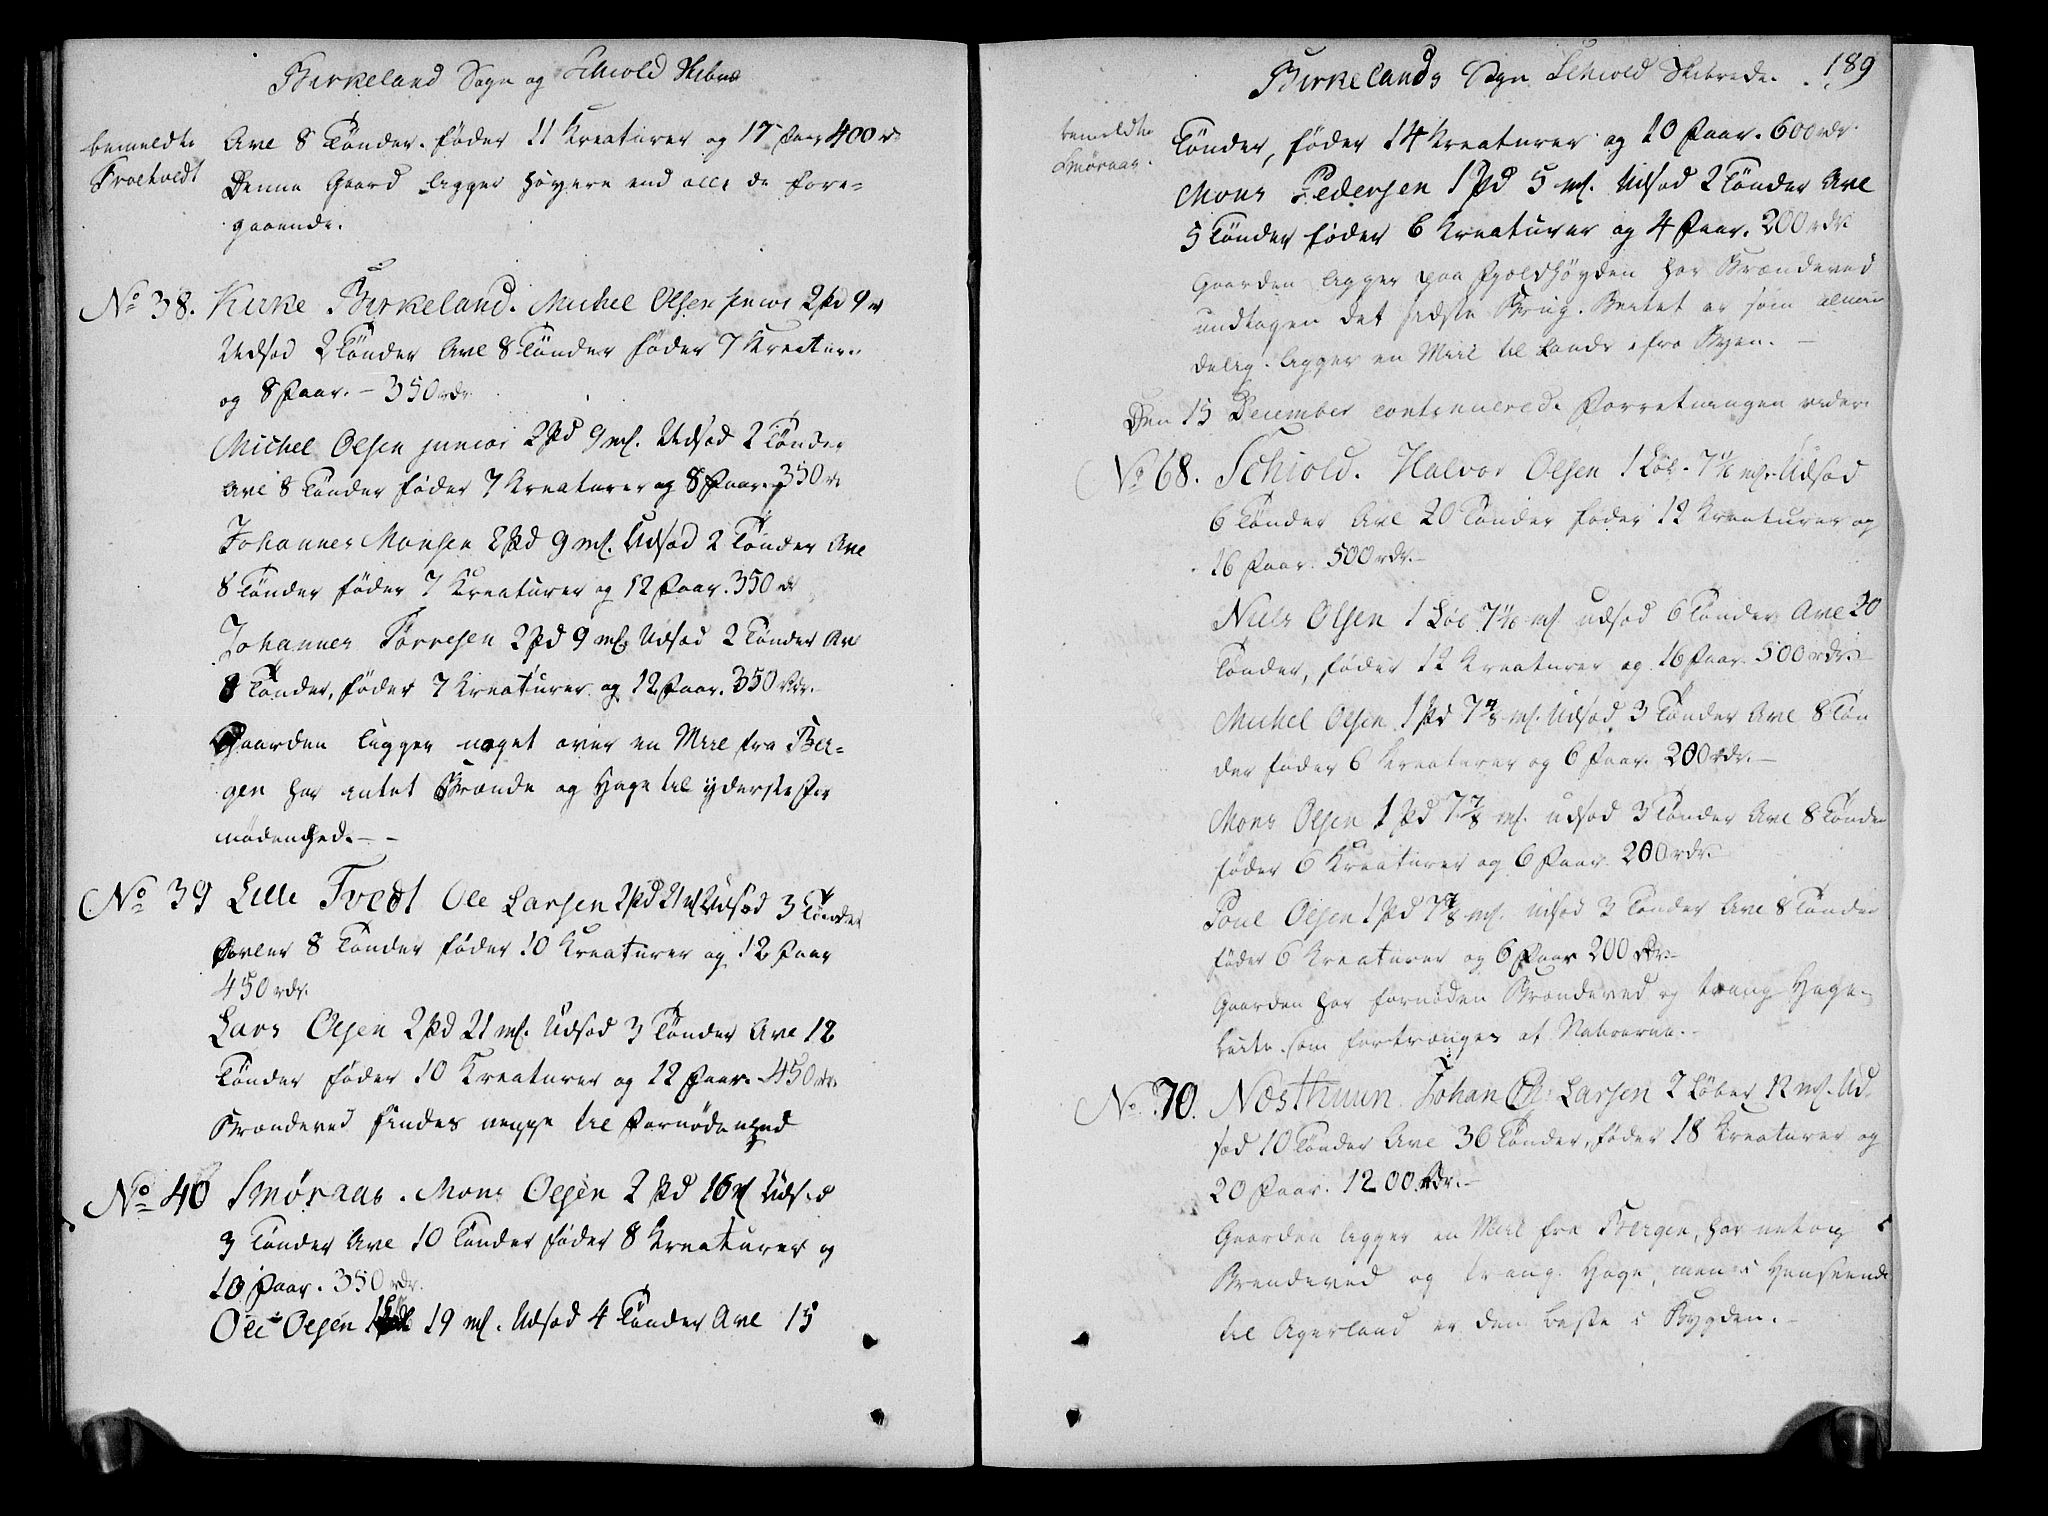 Birkeland Sogn og Schiold Skibræ
bemeldte
Troetvedt
Avl 8 Tønder. føder 11 Kreaturer og 17 Faar 400 r
Denne Gaard ligger høyere end alle de fore-
gaaende.
No 38. Kirke Birkeland. Michel Olsen senior 2 Pd 9 m
Udsæd 2 Tønder Avl 8 Tønder føder 7 Kreatur.
og 8 Faar. – 350 rdr
Michel Olsen junior 2 Pd 9 mf. Udsæd 2 Tønder
Avl 8 Tønder føder 7 Kreaturer og 8 Faar. 350 r
Johannes Monsen 2 Pd 9 mf. Udsæd 2 Tønder Avl
8 Tønder føder 7 Kreaturer og 12 Faar. 350 rd
Johannes Tørresen 2 Pd 9 mf Udsæd 2 Tønder Avl
8 Tønder, føder 7 Kreaturer og 12 Faar. 350 Rdr.
Gaarden ligger noget over en Miil fra Ber-
gen har intet Brænde og Hage til yderste For
nødenhed. – –
No 39 Lille Tvedt Ole Larsen 2 Pd 21 mf Udsæd 3 Tønder
Avler 8 Tønder føder 10 Kreaturer og 12 Faar
450 rdr.
Lars Olsen 2 Pd 21 mf. Udsæd 3 Tønder Avl 12
Tønder føder 10 Kreaturer og 12 Faar. 450 rdr.
Brændeved findes neppe til Fornødenhed
No 40 Smøraas. Mons Olsen 2 Pd 16 mf Udsæd
3 Tønder Avl 10 Tønder føder 8 Kreaturer og
10 Faar. 350 rdr.
Ole Olsen 1 19 mf. Udsæd 4 Tønder Avl 15
Birkelands Sogn Schiold Skibrede. 189
bemeldte
Smøraas.
Tønder, føder 14 Kreaturer og 10 Faar. 600 rdr.
Mons Pedersen 1 Pd 5 mf. Udsæd 2 Tønder Avl
5 Tønder føder 6 Kreaturer og 4 Faar. 200 rdr.
Gaarden ligger paa Fjeldhøyden har Brændeved
undtagen det sidste Brug. Beitet er som almin
delig. ligger en Miil til Lands fra Byen. –
Den 15 December continuerede Forretningen videre
No 68. Schiold. Halvor Olsen 1 Løb. 7 1/2 mf. Udsæd
6 Tønder Avl 20 Tønder føder 12 Kreaturer og
16 Faar. 500 rdr. –
Niels Olsen 1 Løb 7 1/2 mf udsæd 6 Tønder Avl 20
Tønder, føder 12 Kreaturer og 16 Faar. 500 rdr. –
Michel Olsen 1 Pd 7 7/8 mf. Udsæd 3 Tønder Avl 8 Tøn
der føder 6 Kreaturer og 6 Faar. 200 rdr. –
Mons Olsen 1 Pd 7 7/8 mf. udsæd 3 Tønder Avl 8 Tønder
føder 6 Kreaturer og 6 Faar. 200 rdr. –
Poul Olsen 1 Pd 7 7/8 mf. udsæd 3 Tønder Avl 8 Tønder
føder 6 Kreaturer og 6 Faar 200 Rdr. –
Gaarden har fornøden Brændeved og trang Hage-
beite som fortrænges af Naboerne. –
No 70. Næsthuun Johan Larsen 2 Løber 12 mf. Ud-
sæd 10 Tønder Avl 36 Tønder, føder 18 Kreaturer og
20 Faar. 1200 Rdr. –
Gaarden ligger en Miil fra Bergen, har netop
Brendeved og trang Hage, men i Henseende
til Agerland er den beste i Bygden. –